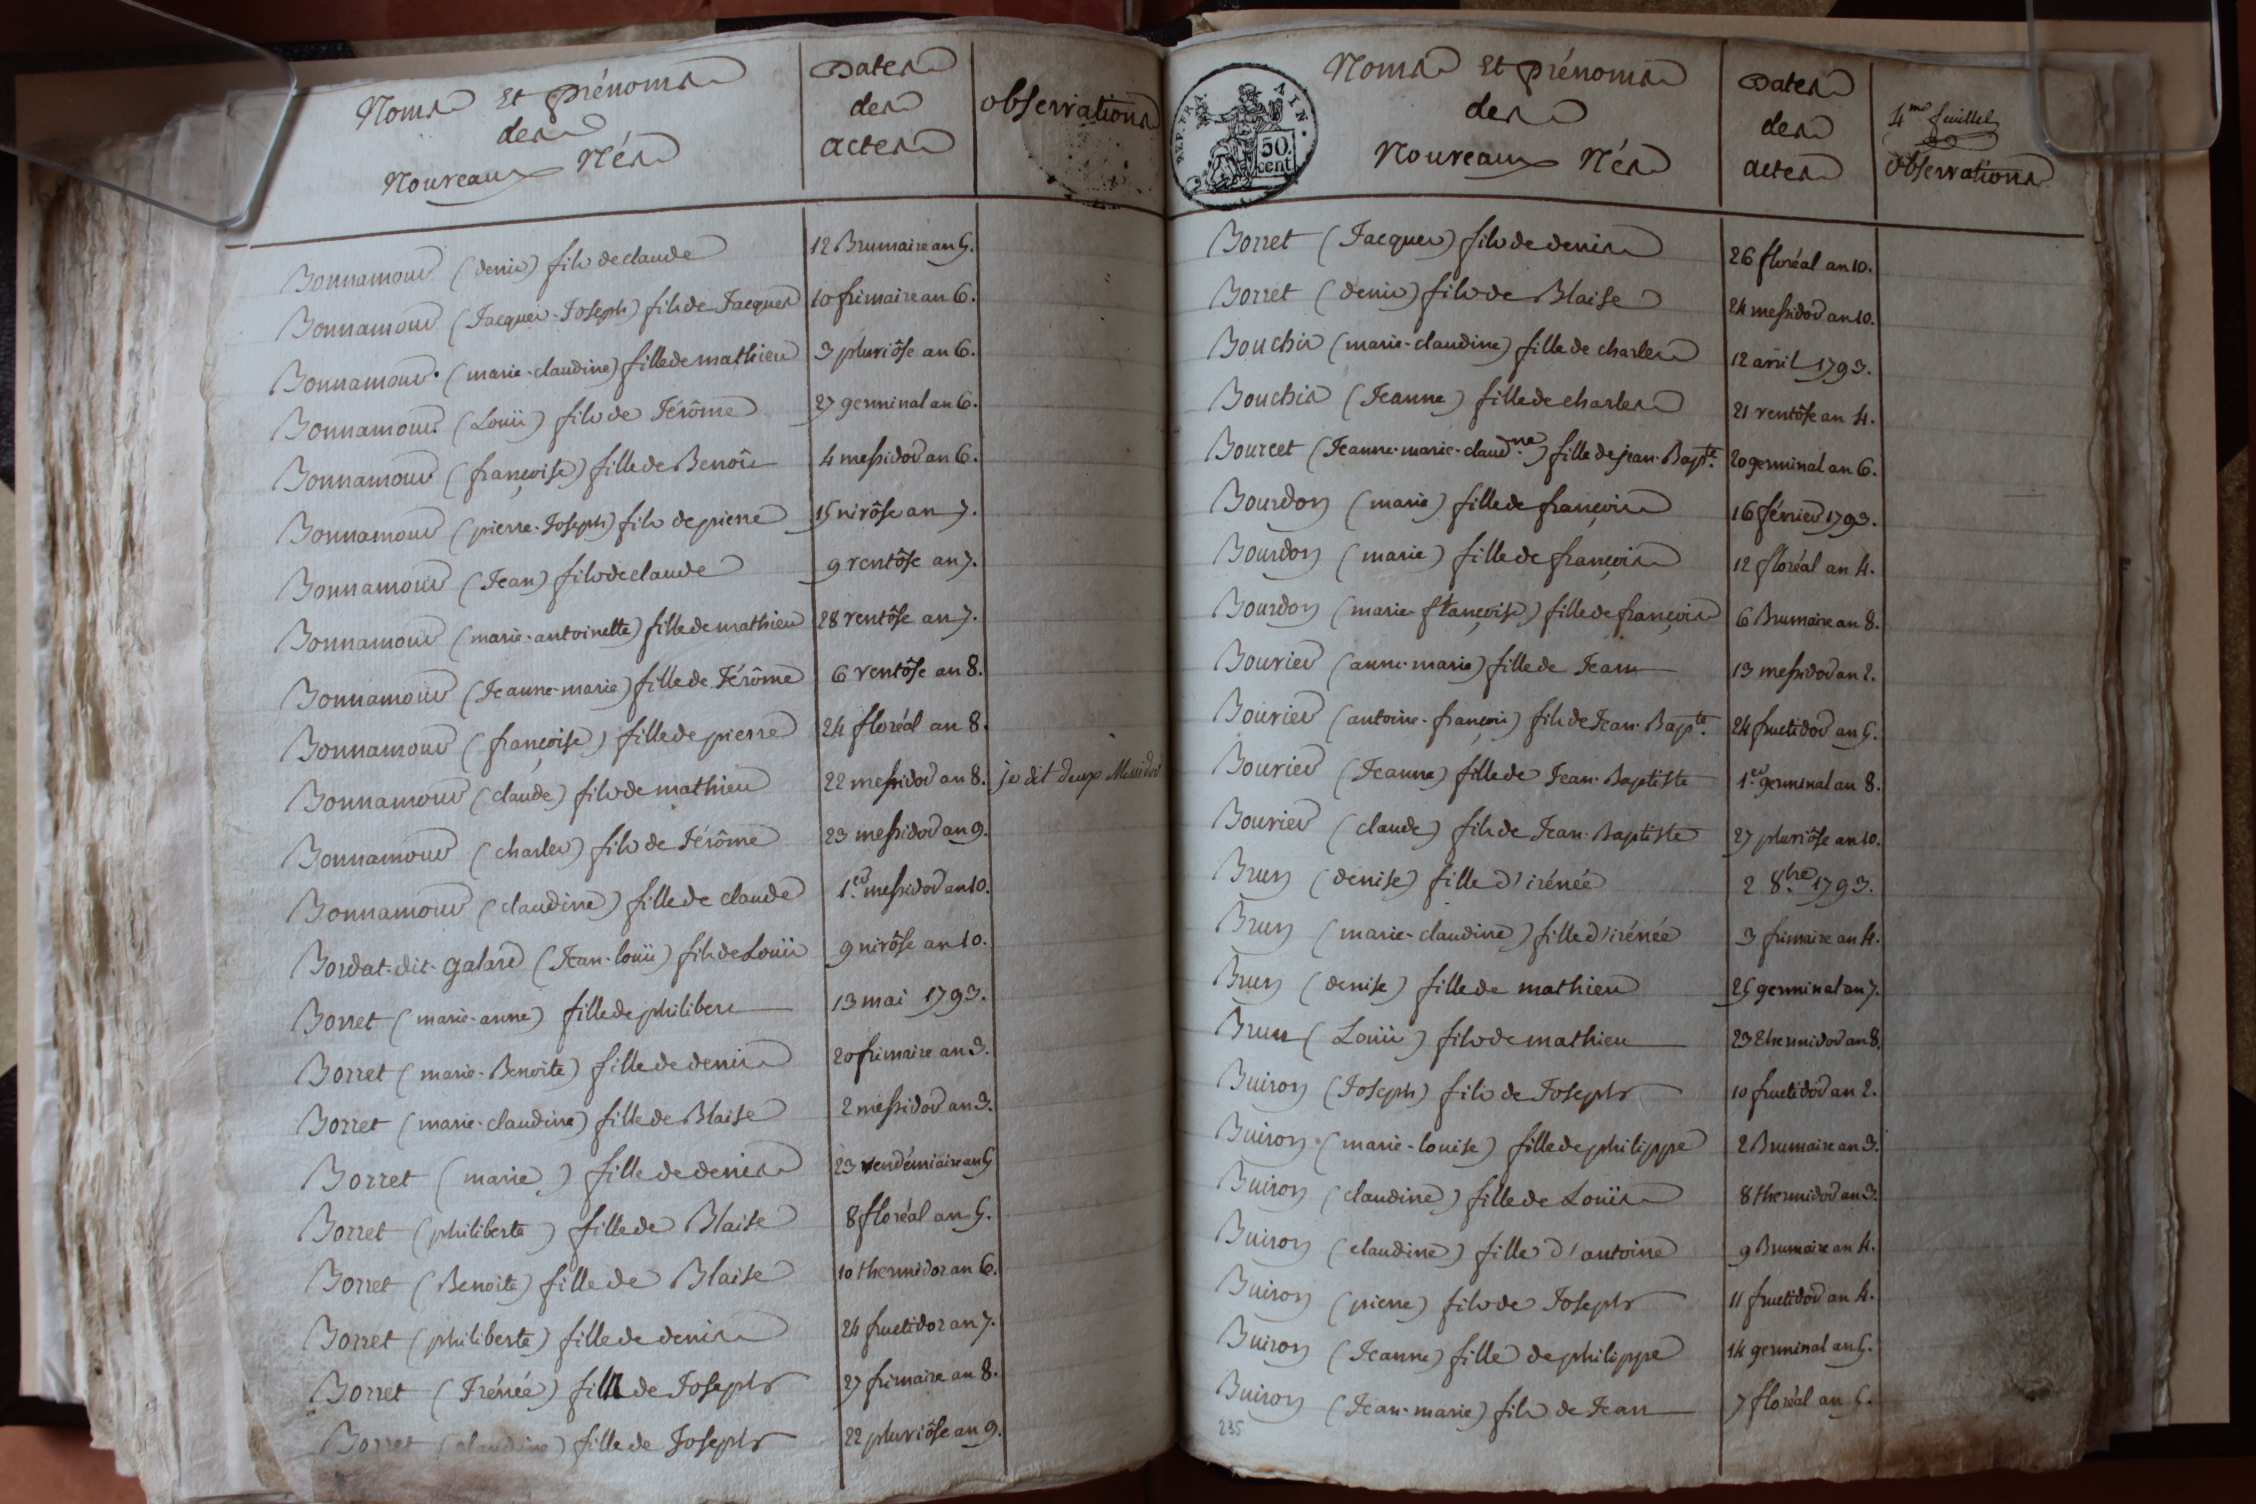 Noms Et Prénoms
des
Nouveaux Nés
Dates
des
actes
observations
Bonnamour (denis) fils de claude 12 Brumaire an 5.
Bonnamour (Jacques-Joseph) fils de Jacques 10 frimaire an 6.
Bonnamour (marie-claudine) fille de mathieu 3 pluviôse an 6.
Bonnamour (Louis) fils de Jérôme 27 germinal an 6.
Bonnamour (françoise) fille de Benoît 4 messidor an 6.
Bonnamour (pierre-Joseph) fils de pierre 15 nivôse an 7.
Bonnamour (Jean) fils de claude 9 ventôse an 7.
Bonnamour (marie-antoinette) fille de mathieu 28 ventôse an 7.
Bonnamour (Jeanne-marie) fille de Jérôme 6 ventôse an 8.
Bonnamour (françoise) fille de pierre 24 floréal an 8.
Bonnamour (claude) fils de mathieu 22 messidor an 8. je dit deux Messidor
Bonnamour (charles) fils de Jérôme 23 messidor an 9.
Bonnamour (claudine) fille de claude 1.er messidor an 10.
Bordat-dit-galard (Jean-louis) fils de Louis 9 nivôse an 10.
Borret (marie-anne) fille de philibert 13 mai 1793.
Borret (marie-Benoite) fille de denis 20 frimaire an 3.
Borret (marie-claudine) fille de Blaise 2 messidor an 3.
Borret (marie) fille de denis 23 vendémiaire an 5
Borret (philiberte) fille de Blaise 8 floréal an 5.
Borret (Benoite) fille de Blaise 10 thermidor an 6.
Borret (philiberte) fille de denis 24 fructidor an 7.
Borret (Irénée) fils de Joseph 27 frimaire an 8.
Borret (claudine) fille de Joseph 22 pluviôse an 9.
REP. FRA. AIN.
50
cent
Noms Et Prénoms
des
Nouveaux Nés
Dates
des
actes
4me feuillet
Observations
Borret (Jacques) fils de denis 26 floréal an 10.
Borret (denis) fils de Blaise 24 messidor an 10.
Bouchis (marie-claudine) fille de charles 12 avril 1793.
Bouchis (Jeanne) fille de charles 21 ventôse an 4.
Bourcet (Jeanne-marie-claud.ne) fille de jean-Bap.te 20 germinal an 6.
Bourdon (marie) fille de françois 16 février 1793.
Bourdon (marie) fille de françois 12 floréal an 4.
Bourdon (marie-françoise) fille de françois 6 Brumaire an 8.
Bourier (anne-marie) fille de Jean 13 messidor an 2.
Bourier (antoine-françois) fils de Jean-Bap.te 24 fructidor an 5.
Bourier (Jeanne) fille de Jean-Baptiste 1.er germinal an 8.
Bourier (claude) fils de Jean-Baptiste 27 pluviôse an 10.
Brun (denise) fille d'irénée 2 8.bre 1793.
Brun (marie-claudine) fille d'irénée 3 frimaire an 4.
Brun (denise) fille de mathieu 25 germinal an 7.
Brun (Louis) fils de mathieu 23 thermidor an 8.
Buiron (Joseph) fils de Joseph 10 fructidor an 2.
Buiron (marie-louise) fille de philippe 2 Brumaire an 3.
Buiron (claudine) fille de Louis 8 thermidor an 3.
Buiron (claudine) fille d'antoine 9 Brumaire an 4.
Buiron (pierre) fils de Joseph 11 fructidor an 4.
Buiron (Jeanne) fille de philippe 14 germinal an 5.
Buiron (Jean-marie) fils de Jean 7 floréal an 5.
235